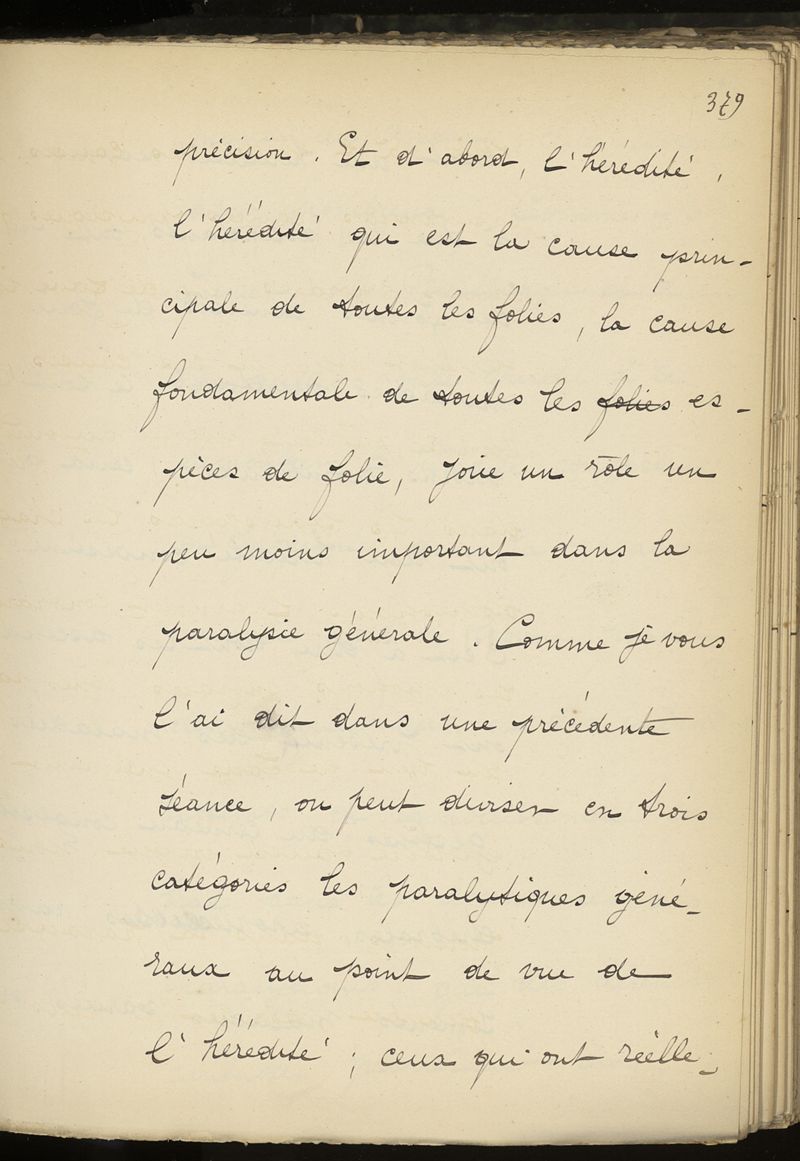 379
précision. Et d'abord, l'hérédité,
l'hérédité qui est la cause prin-
cipale de toutes les folies, la cause
fondamentale de toutes les folies es-
pèces de folie, joue un rôle un
peu moins important dans la
paralysie générale. Comme je vous
l'ai dit dans une précédente
séance, on peut diviser en trois
catégories les paralytiques géné-
raux au point de vue de
l'hérédité ; ceux qui ont réelle-